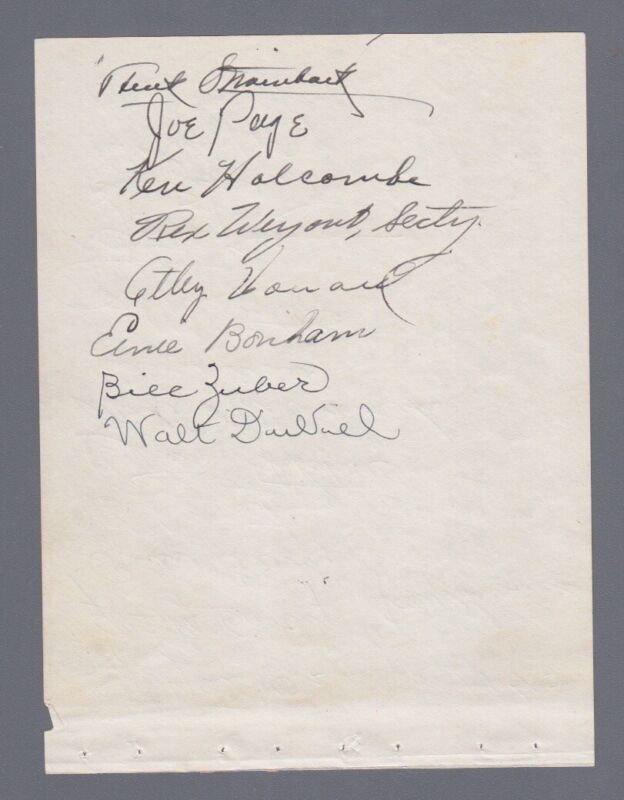 Joe Page
Ken Holcombe
Rex Weyant, Secty.
Atley Donald
Ernie Bonham
Bill Zuber
Walt Dubiel